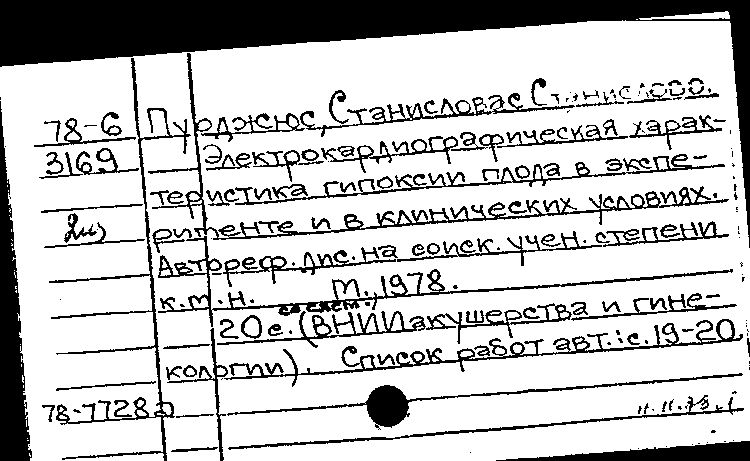 78-6 Пурджюс, Станисловас Станислово.
3169 Электрокардиографическая харак-
теристика гипоксии плода в экспе-
2из рименте и в клинических условиях.
Автореф. дис. на соиск. учен. степени
к.м.н. М., 1978.
со схем.;
20 с. (ВНИИ акушерства и гине-
кологии). Список работ авт.: с. 19-20.
78-7728а 11.11.78.